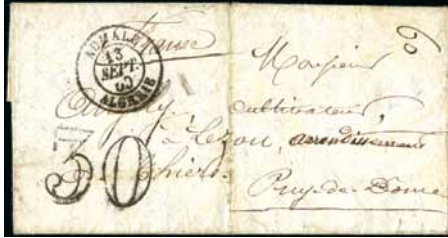 AUMALE
13
SEPT.
60
ALGÉRIE
France
60
Monsieur
cultivateur,
à Lezou, arrondissement
Thiers.
30
Puy-de-Dome